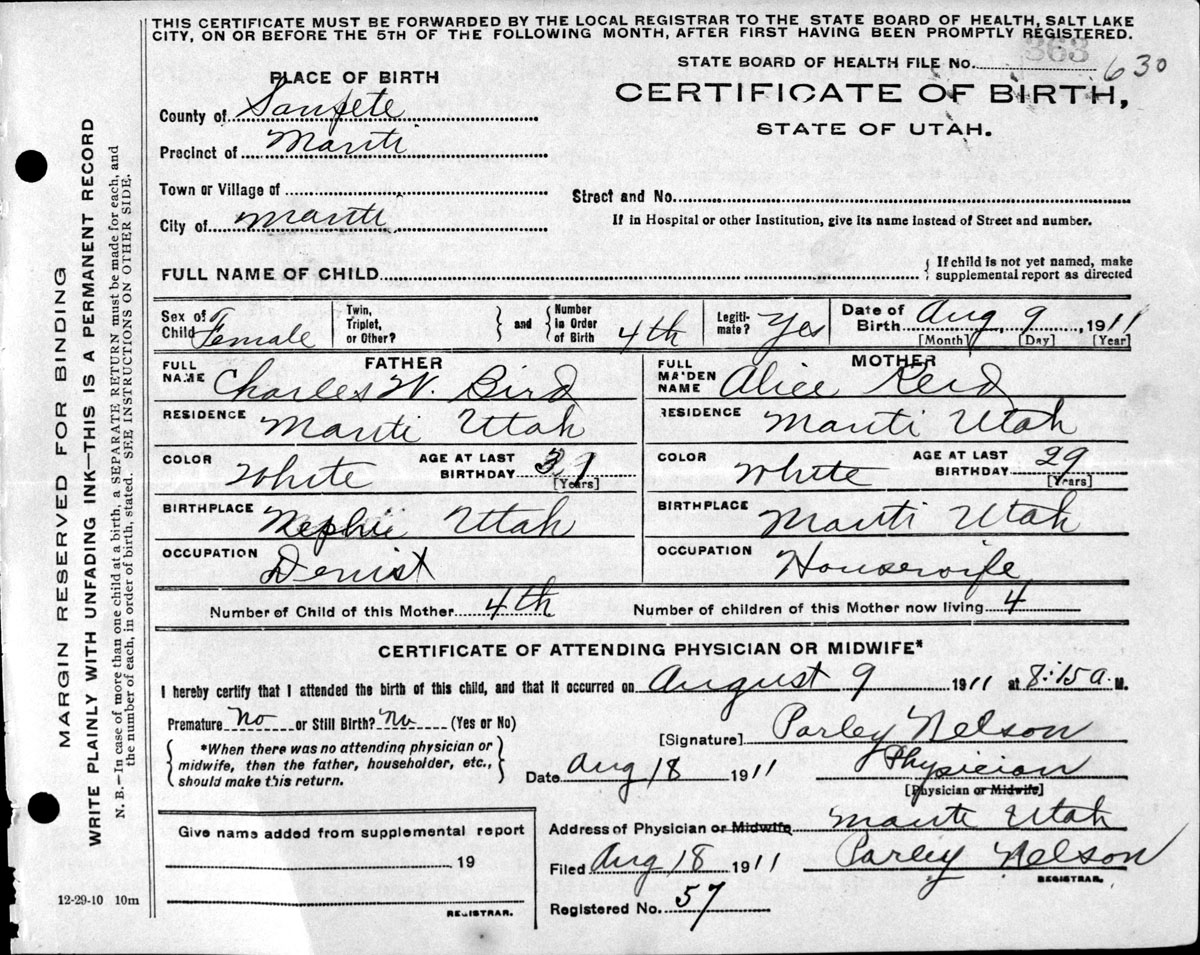 THIS CERTIFICATE MUST BE FORWARDED BY THE LOCAL REGISTRAR TO THE STATE BOARD OF HEALTH, SALT LAKE
CITY, ON OR BEFORE THE 5TH OF THE FOLLOWING MONTH, AFTER FIRST HAVING BEEN PROMPTLY REGISTERED.
STATE BOARD OF HEALTH FILE No. 363 630
PLACE OF BIRTH
CERTIFICATE OF BIRTH,
STATE OF UTAH.
County of Sanpete
Precinct of Manti
Town or Village of
Street and No.
City of Manti
If in Hospital or other Institution, give its name instead of Street and number.
FULL NAME OF CHILD
If child is not yet named, make
supplemental report as directed
Sex of Child Female
Twin, Triplet, or Other?
and
Number in Order of Birth 4th
Legiti-mate? Yes
Date of Birth Aug 9, 1911
[Month] [Day] [Year]
FATHER
FULL NAME Charles W. Bird
RESIDENCE Manti Utah
COLOR White
AGE AT LAST BIRTHDAY 31
[Years]
BIRTHPLACE Nephi Utah
OCCUPATION Denist
MOTHER
FULL MAIDEN NAME Alice Reid
RESIDENCE Manti Utah
COLOR White
AGE AT LAST BIRTHDAY 29
[Years]
BIRTHPLACE Manti Utah
OCCUPATION Housewife
Number of Child of this Mother 4th
Number of children of this Mother now living 4
CERTIFICATE OF ATTENDING PHYSICIAN OR MIDWIFE*
I hereby certify that I attended the birth of this child, and that it occurred on August 9 1911 at 8:15 a. M.
Premature No or Still Birth? No (Yes or No)
*When there was no attending physician or
midwife, then the father, householder, etc.,
should make this return.
[Signature] Parley Nelson
Date Aug 18 1911
Physician
[Physician or Midwife]
Give name added from supplemental report
19
REGISTRAR.
Address of Physician or Midwife Manti Utah
Filed Aug 18 1911 Parley Nelson
REGISTRAR.
Registered No. 57
12-29-10 10m
MARGIN RESERVED FOR BINDING
WRITE PLAINLY WITH UNFADING INK—THIS IS A PERMANENT RECORD
N. B.—In case of more than one child at a birth, a SEPARATE RETURN must be made for each, and
the number of each, in order of birth, stated. SEE INSTRUCTIONS ON OTHER SIDE.